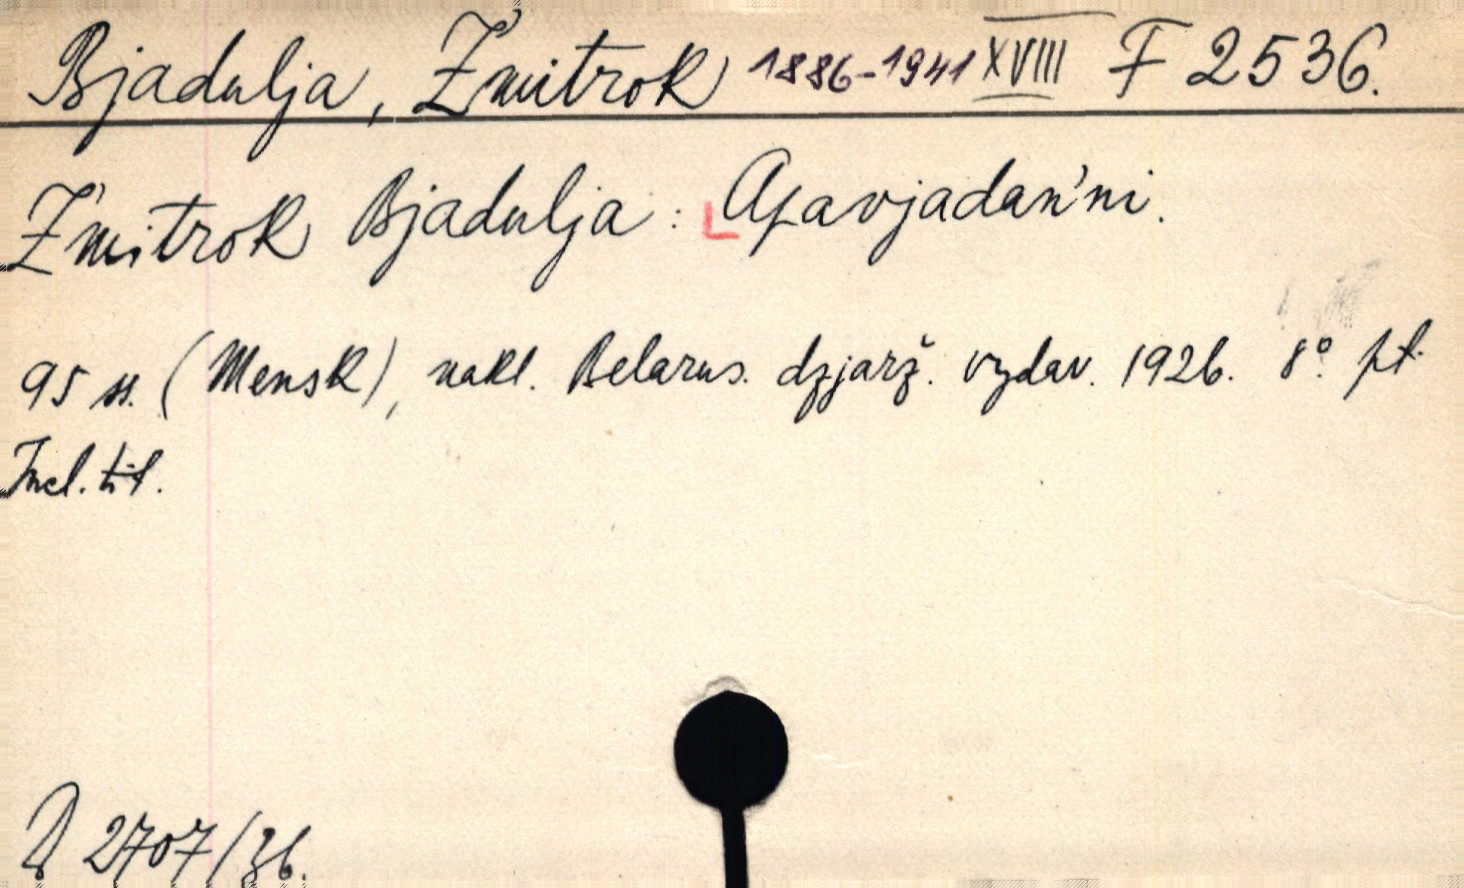 Bjadulja, Źmitrok 1886-1941 XVIII F 2536.
Źmitrok Bjadulja: Apavjadańni.
95 ss. (Mensk), nakl. Belarus. dzjarž. vydav. 1926. 8° pt.
Incl. tit.
D 2707/36.